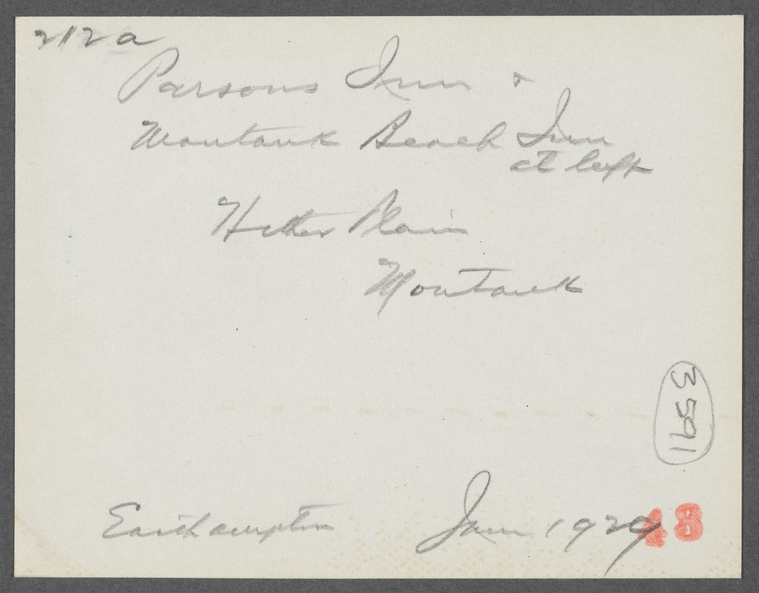 2112a
Parsons Inn &
Montauk Beach Inn
at left
Hither Plain
Montauk
3591
Easthampton Jan 1929 48